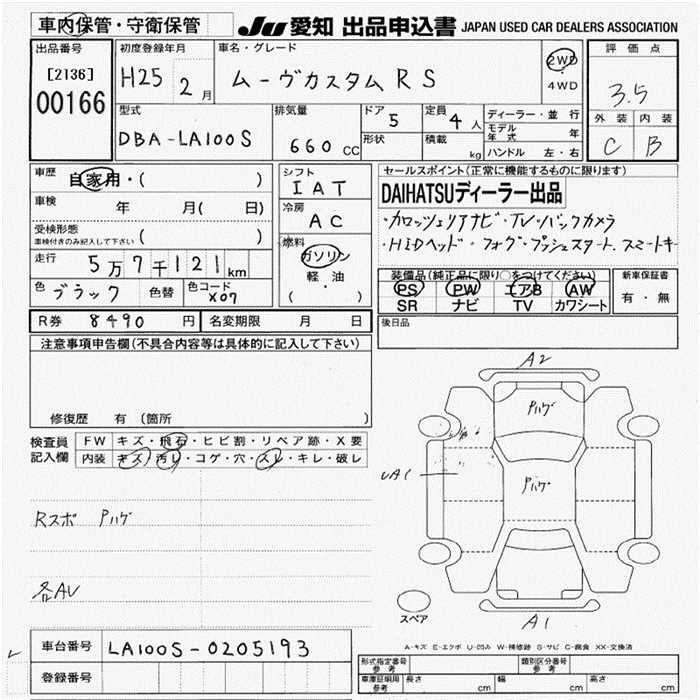 車内保管・守衛保管
JU 愛知 出品申込書 JAPAN USED CAR DEALERS ASSOCIATION
出品番号
[2136]
00166
初度登録年月
H25 2月
車名・グレード
ムーヴカスタムRS
2WD
4WD
評価点
3.5
外装 内装
C B
型式
DBA-LA100S
排気量
660 CC
ドア 5
形状
定員 4人
積載 kg
ディーラー・並行
モデル年式 年
ハンドル 左・右
車歴 自家用・( )
車検 年 月( 日)
受検形態
車検付きのみ記入して下さい ( )
走行 5万7千121km
色 ブラック 色替 色コード X07
シフト
IAT
冷房
AC
燃料
ガソリン
軽・油
( ・ )
セールスポイント(正常に機能するものに限ります)
DAIHATSUディーラー出品
・カロッツェリアナビ・TV・バックカメラ
・HIDヘッド・フォグ・プッシュスタート.スマートキー
装備品(純正品に限り〇をつけてください)
PS PW エアB AW
SR ナビ TV カワシート
新車保証書
有・無
R券 8490 円 名変期限 月 日
後日品
注意事項申告欄(不具合内容等は具体的に記入して下さい)
修復歴 有(箇所 )
検査員記入欄
FW キズ・飛石・ヒビ割・リペア跡・X要
内装 キズ・汚レ・コゲ・穴・スレ・キレ・破レ
Rスポ Pハゲ
各AU
A2
Pハゲ
Pハゲ
UA1
A1
スペア
A-キズ E-エクボ U-凹み W-補修跡 S-サビ C-腐食 XX-交換済
車台番号 LA100S-0205193
登録番号
形式指定番号 参考
類別区分番号 参考
車庫証明用 参考 長さ cm 幅 cm 高さ cm